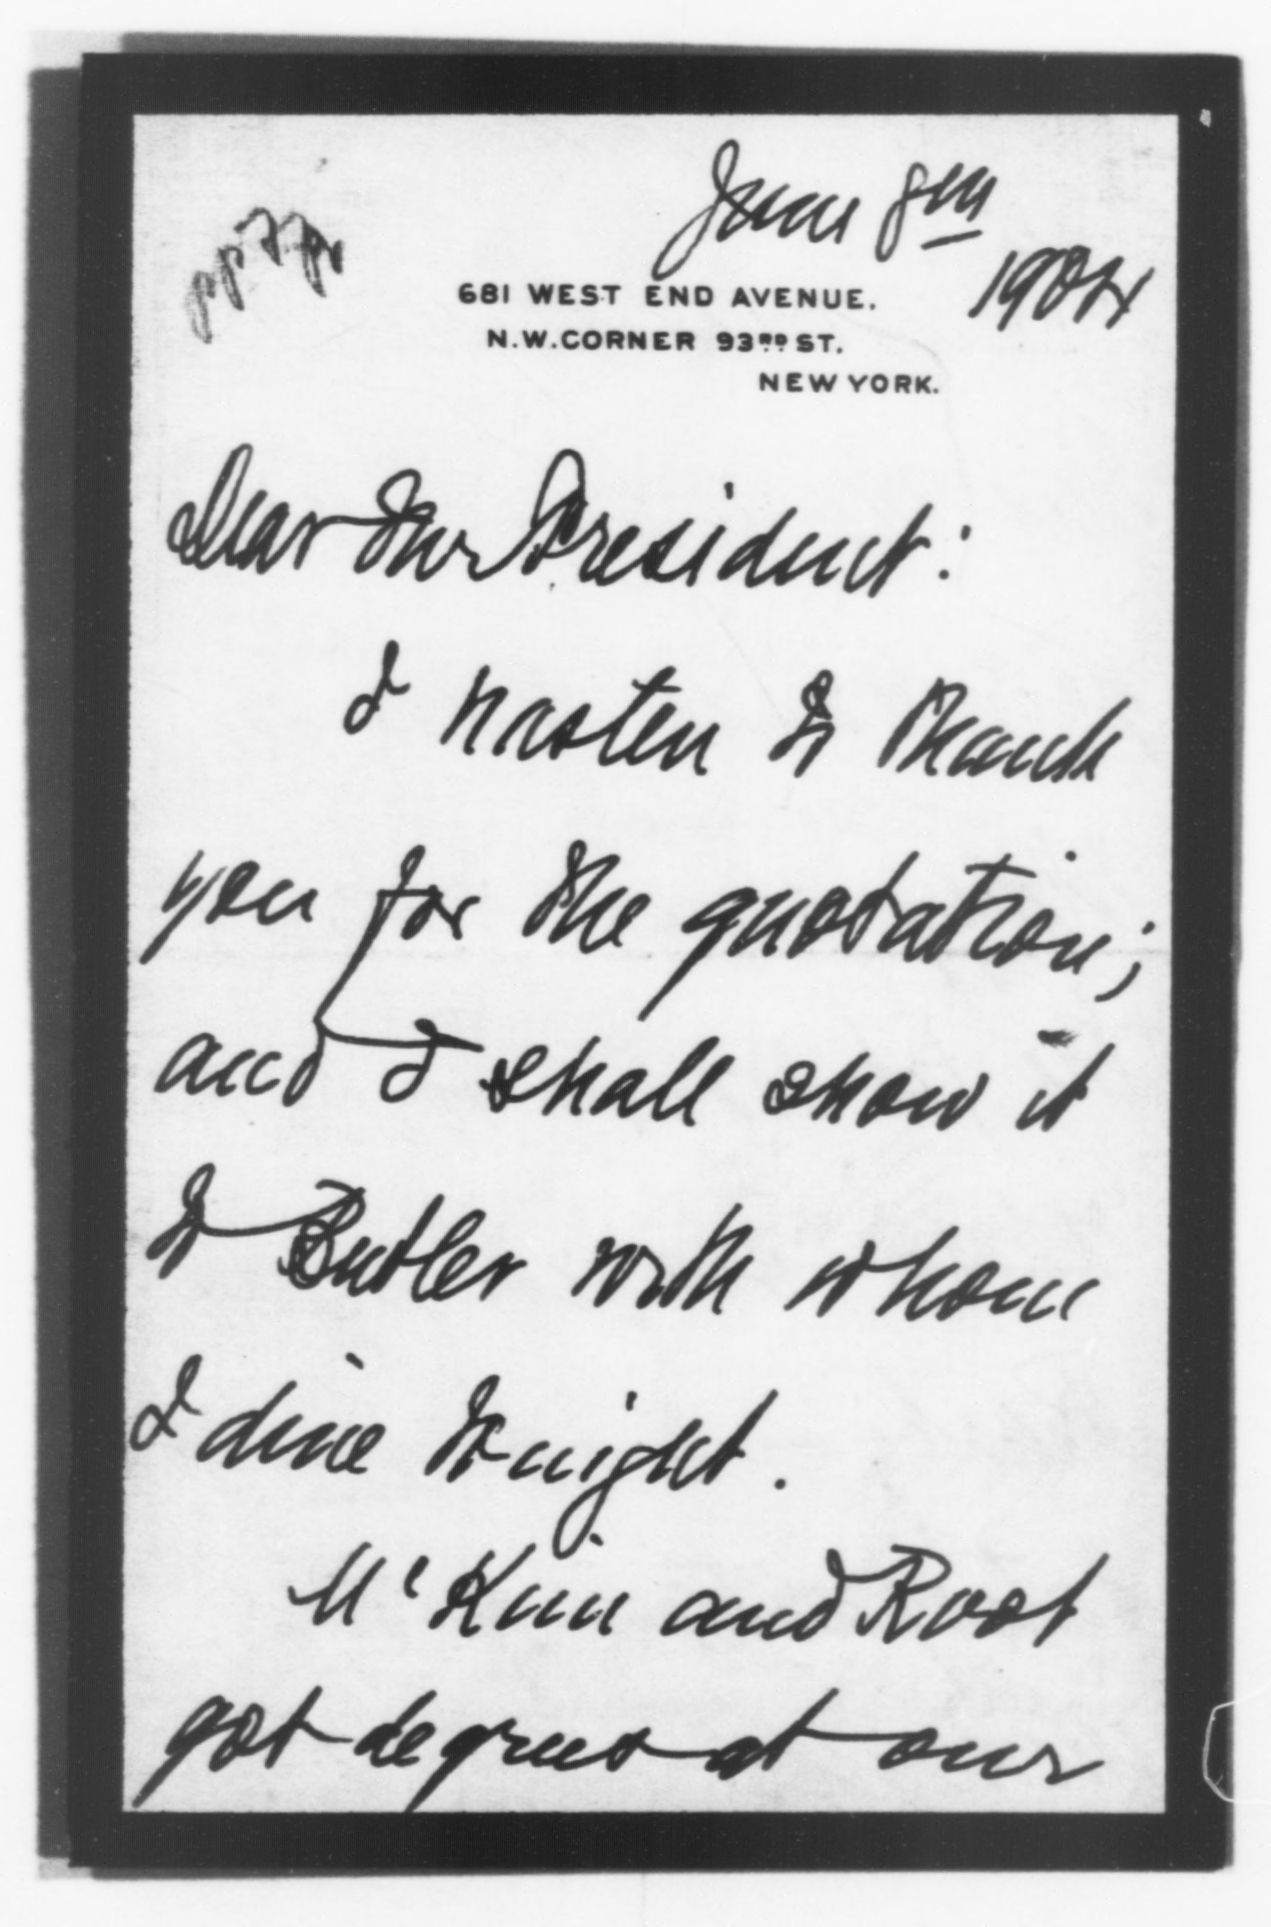 June 8th
1904
681 WEST END AVENUE.
N.W. CORNER 93RD ST.
NEW YORK.
Dear Mr President:
I hasten to thank
you for the quotation;
and I shall show it
to Butler with whom
I dine to-night.
McKim and Root
got degrees at our